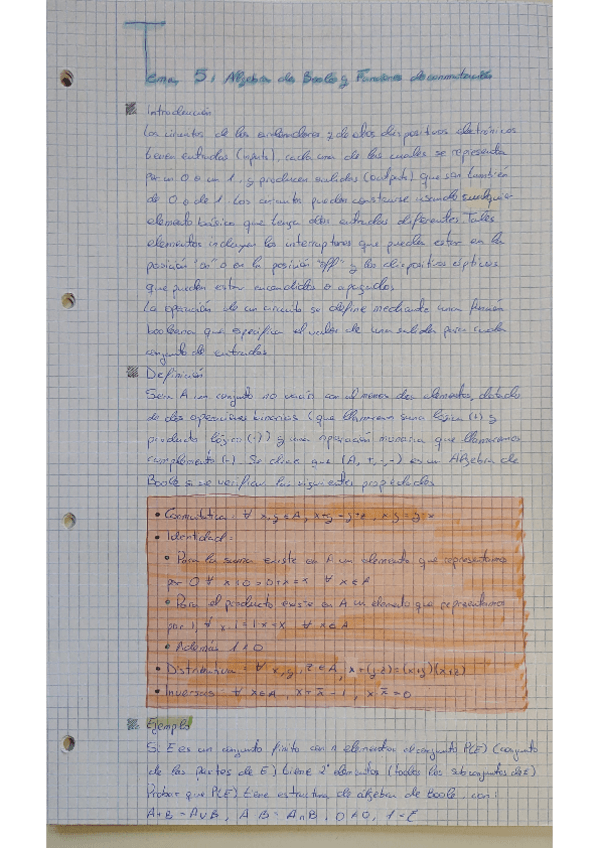 Tema 5: Álgebra de Boole y Funciones de conmutación
Introducción
Los circuitos de los ordenadores y de otros dispositivos electrónicos
tienen entradas (inputs), cada una de las cuales se representa
por un 0 o un 1, y producen salidas (outputs) que son también
de 0 o de 1. Los circuitos pueden construirse usando cualquier
elemento básico que tenga dos entradas diferentes. Tales
elementos incluyen los interruptores que pueden estar en la
posición "on" o en la posición "off" y los dispositivos ópticos
que pueden estar encendidos o apagados.
La operación de un circuito se define mediante una función
booleana que especifica el valor de una salida para cada
conjunto de entradas.
Definición
Sea A un conjunto no vacío con al menos dos elementos, dotado
de dos operaciones binarias (que llamaremos suma lógica (+) y
producto lógico (·)) y una operación unaria que llamaremos
complemento (-). Se dice que (A, +, ·, -) es un Álgebra de
Boole si se verifican las siguientes propiedades
• Conmutativa: ∀ x,y ∈ A, x+y = y+x, x·y = y·x
• Identidad:
• Para la suma existe en A un elemento que representamos
por 0 ∀ x+0=0+x=x ∀ x∈A
• Para el producto existe en A un elemento que representamos
por 1, ∀ x·1=1·x=x ∀ x∈A
• Además 1≠0
• Distributiva: ∀ x,y,z ∈ A, x+(y·z)=(x+y)(x+z)
• Inversos ∀ x∈A, x+x̄=1, x·x̄=0
Ejemplo
Si E es un conjunto finito con n elementos el conjunto P(E) (conjunto
de las partes de E) tiene 2ⁿ elementos (todos los subconjuntos de E)
Probar que P(E) tiene estructura de álgebra de Boole, con:
A+B = A∪B, A·B = A∩B, 0=∅, 1=E